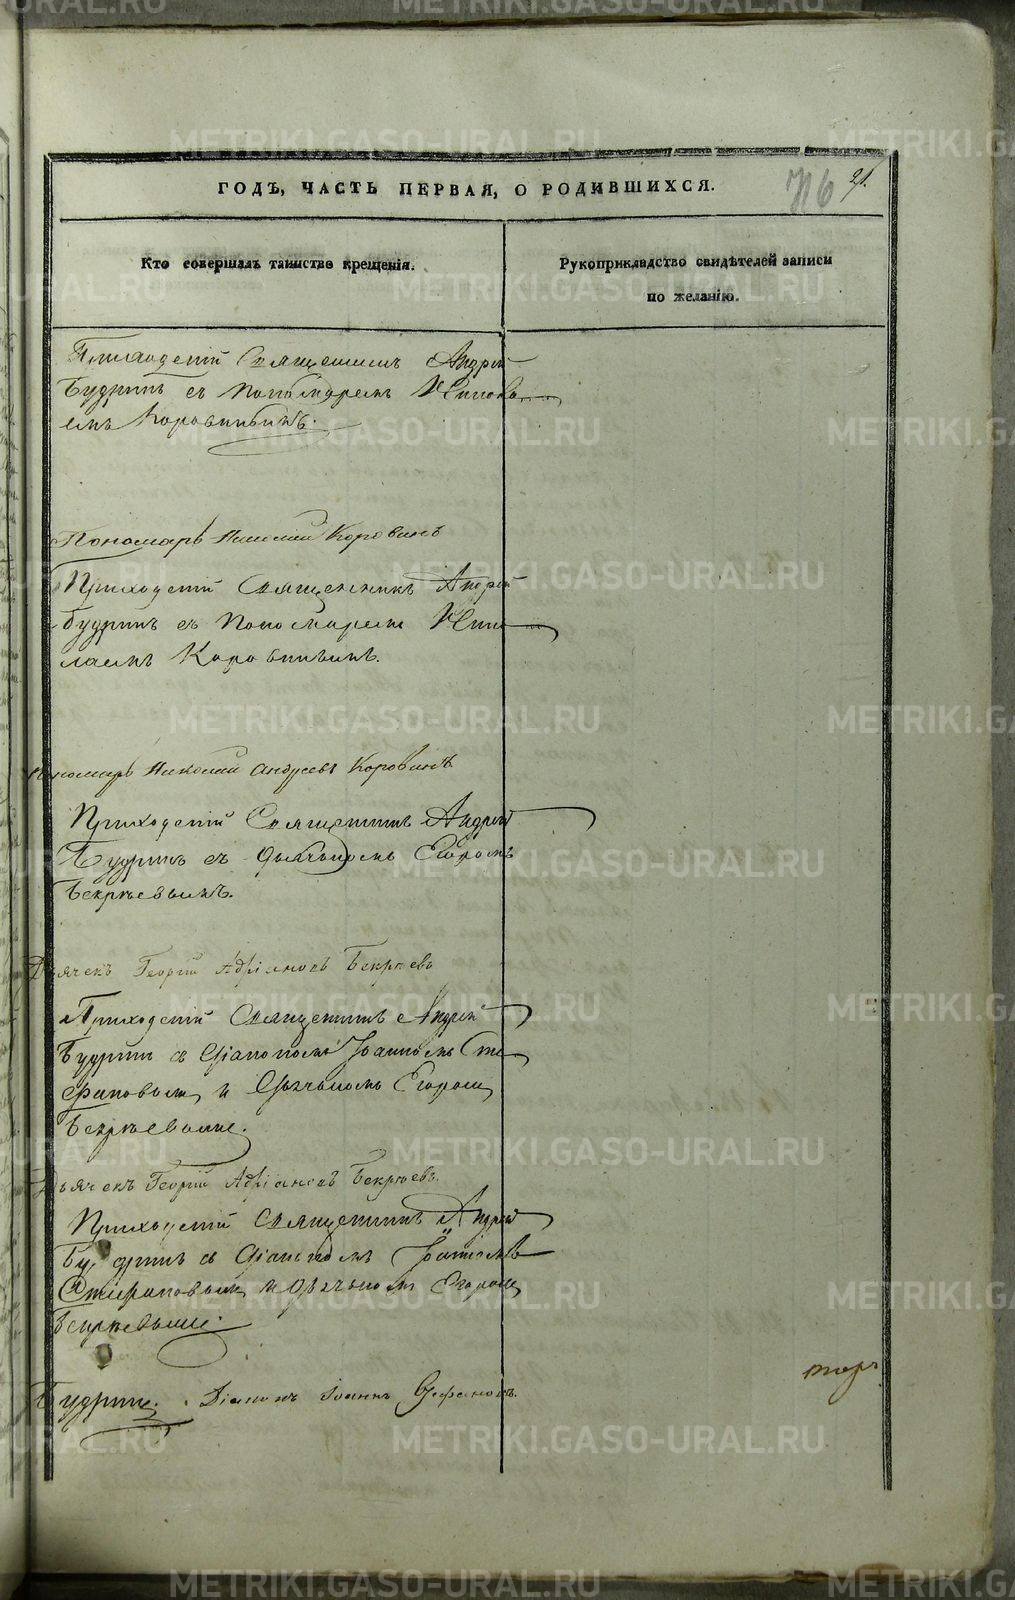 ГОДЪ, ЧАСТЬ ПЕРВАЯ, О РОДИВШИХСЯ.
716 21.
Кто совершалъ таинство крещенія.
Рукоприкладство свидѣтелей записи
по желанію.
Приходскій Священникъ Андрей
Будринъ съ Пономаремъ Никола
емъ Коровинымъ.
Пономарь Николай Коровинъ
Приходскій Священникъ Андрей
Будринъ съ Пономаремъ Нико
лаемъ Коровинымъ.
Пономарь Николай Андреевъ Коровинъ
Приходскій Священникъ Андрей
Будринъ съ Дьячкомъ Егоромъ
Бекрѣевымъ.
Дьячекъ Георгій Адріановъ Бекрѣевъ
Приходскій Священникъ Андрей
Будринъ съ Діакономъ Іоанномъ Сте
фановымъ и Дьячкомъ Егоромъ
Бекрѣевымъ.
Дьячекъ Георгій Адріановъ Бекрѣевъ.
Приходскій Священникъ Андрей
Будринъ съ Діакономъ Іоанномъ
Стефановымъ и Дьячкомъ Егоромъ
Бекрѣевымъ.
Будринъ. Діаконъ Іоаннъ Стефановъ.
METRIKI.GASO-URAL.RU